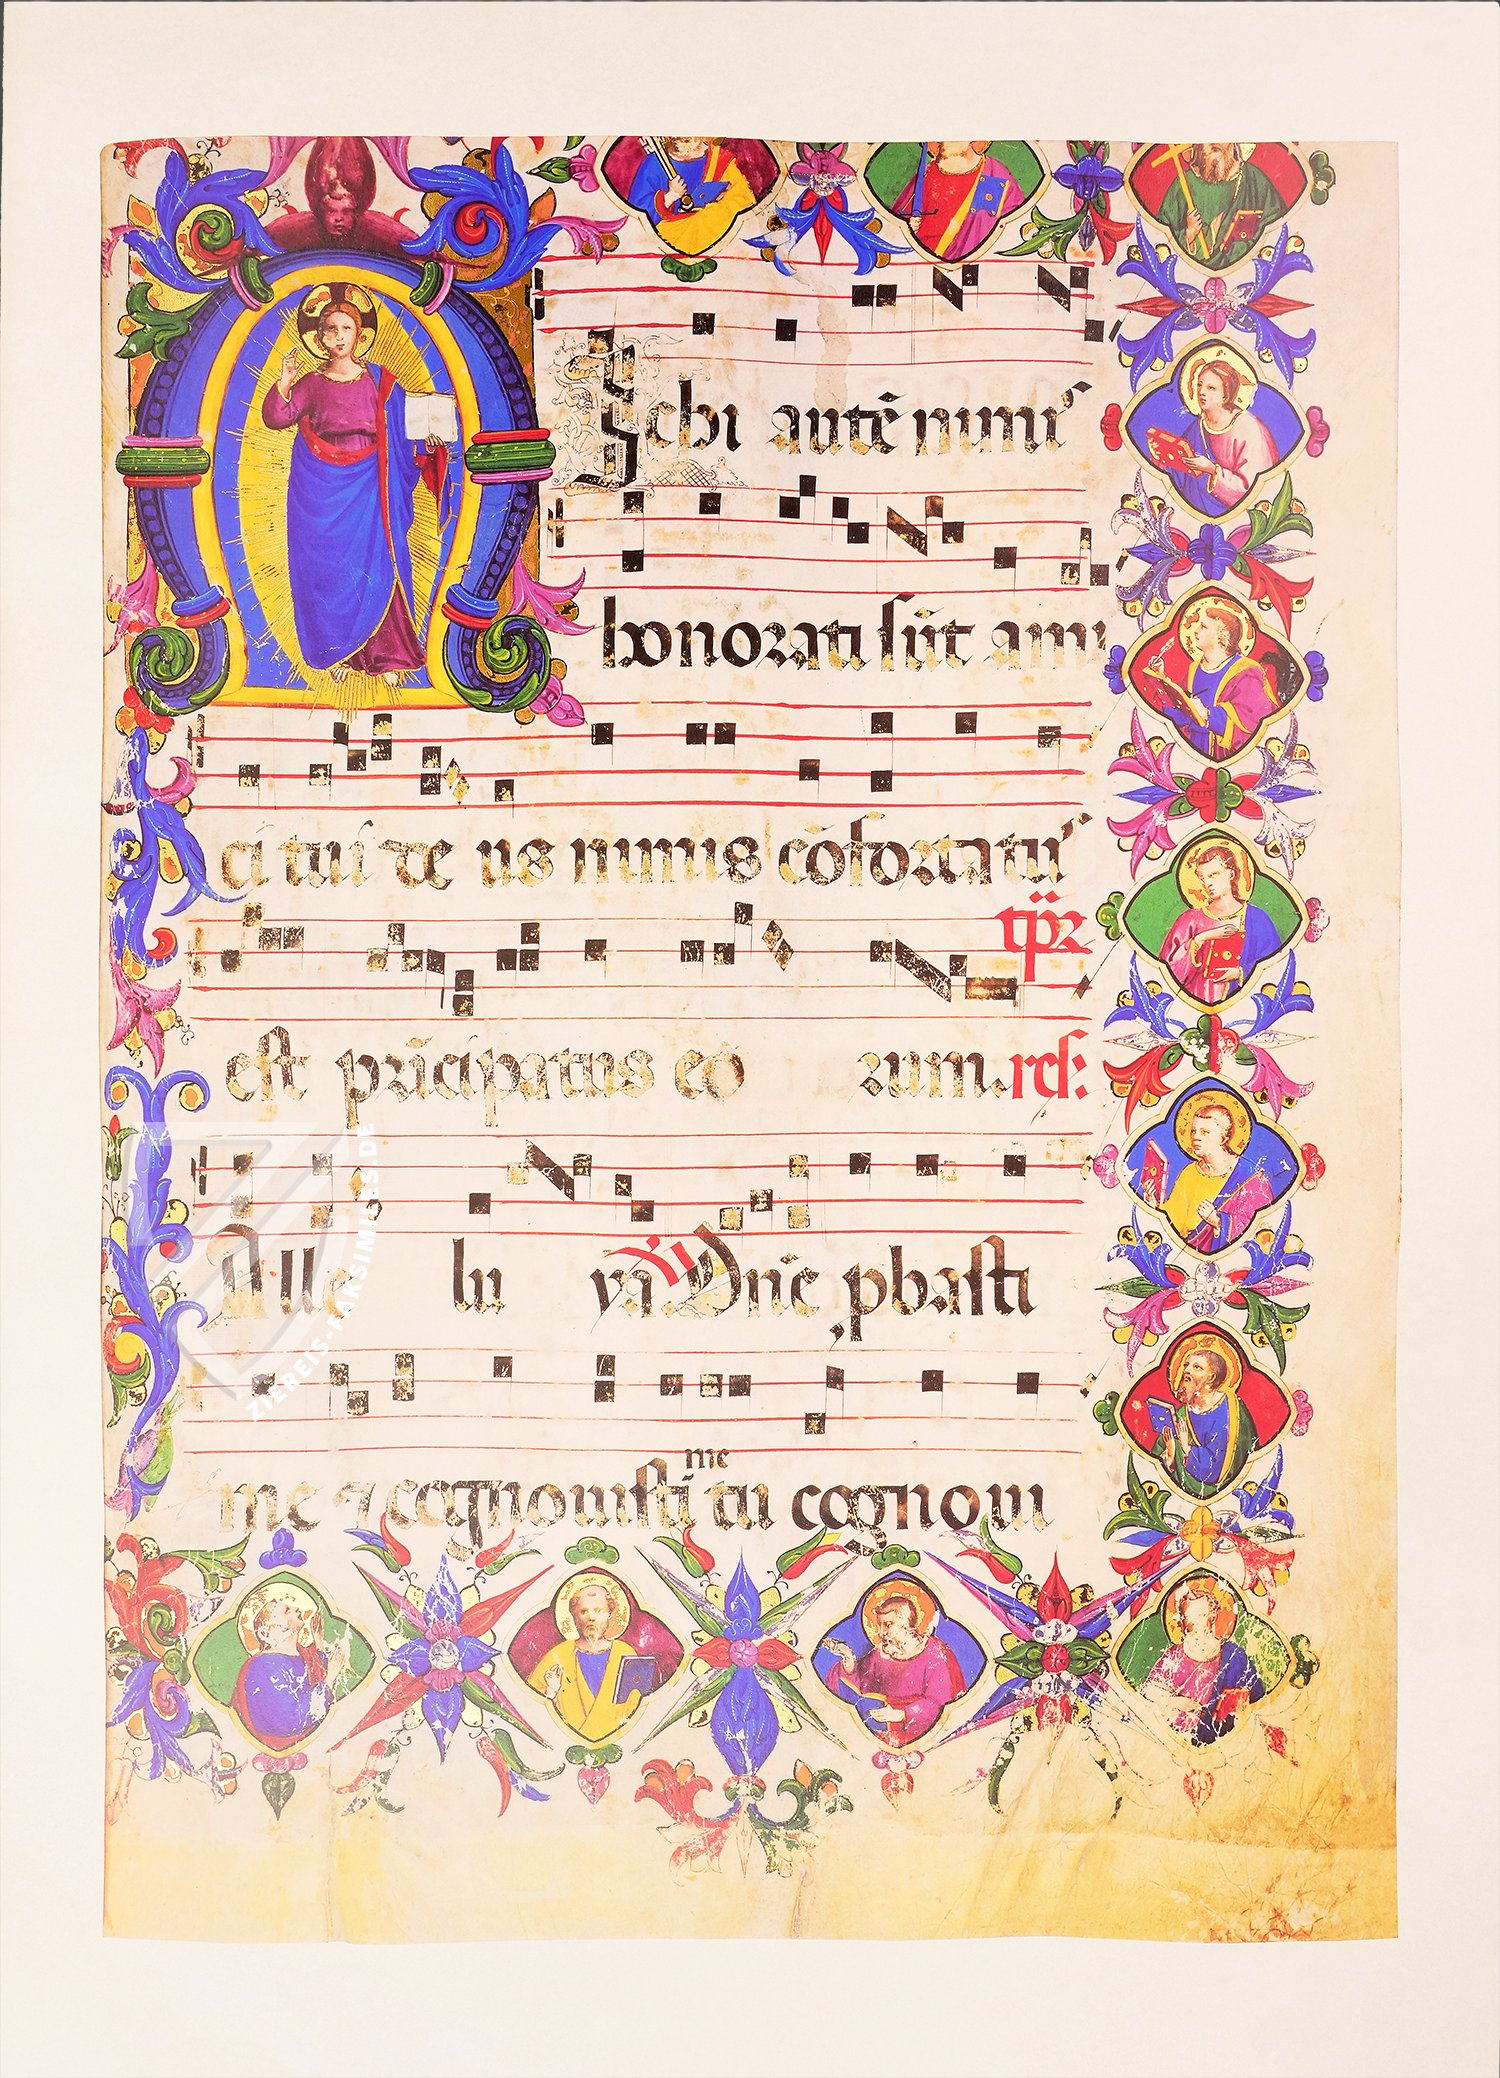 Michi autē nimis
honorati sūt ami
ci tui de us nimis cōfortatus
tp̄r
est prīcipatus eo rum. r̄ck:
Alle lu ya. V Dn̄e pbasti
me
me ⁊ cognouisti tu cognoui
ZIEREIS-FAKSIMILES.DE